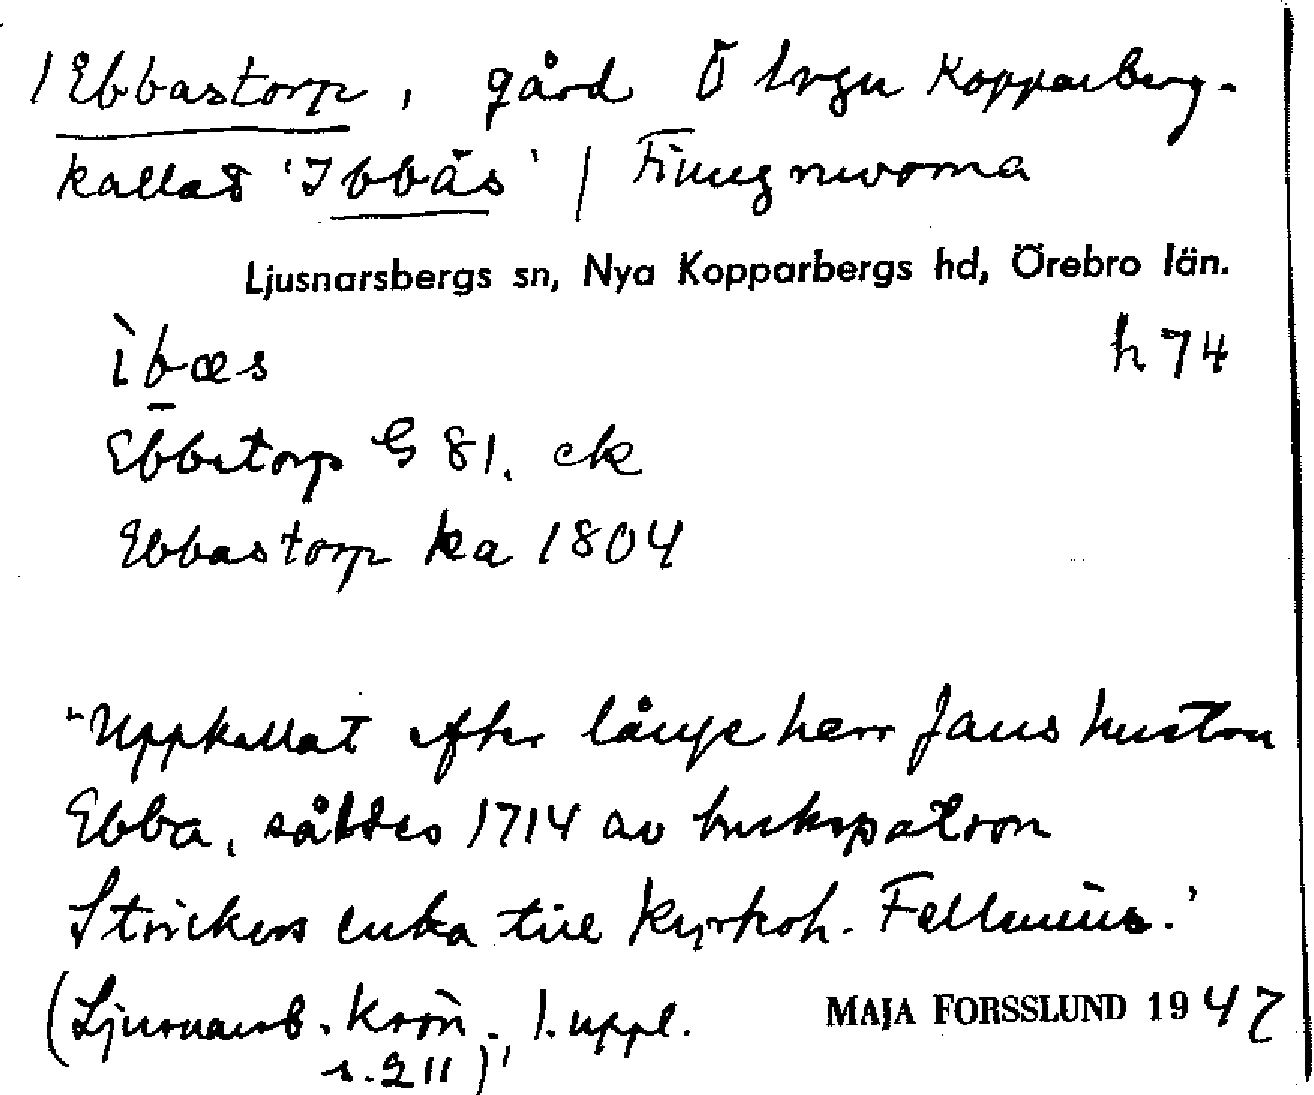 / Ebbastorp, gård Ö Kopparberg-
kallad 'Ibbäs' /
Ljusnarsbergs sn, Nya Kopparbergs hd, Örebro län.
ìbæs h 74
Ebbetorp G 81. ek
Ebbastorp ka 1804
"Uppkallat efter långe herr Jans hustru
Ebba, såldes 1714 av brukspatron
Strickers enka till kyrkoh. Fellenius.'
(Ljusnarsb. Krön. 1. uppl.
s. 211)'
MAJA FORSSLUND 1947